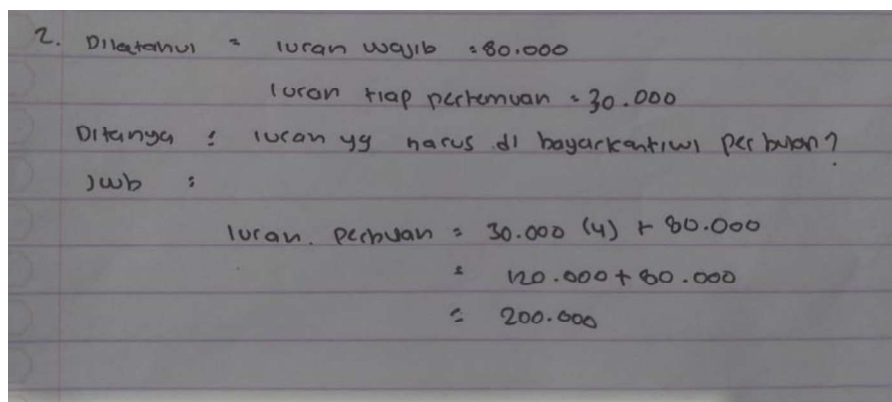 2. Diketahui = iuran wajib = 80.000
iuran tiap pertemuan = 30.000
Ditanya : iuran yg harus di bayarkan tiwi per bulan?
Jwb :
iuran perbulan = 30.000 (4) + 80.000
= 120.000 + 80.000
= 200.000